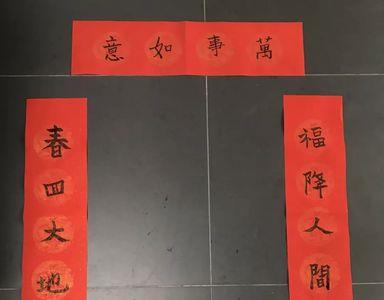 萬事如意
福降人間
春四大地